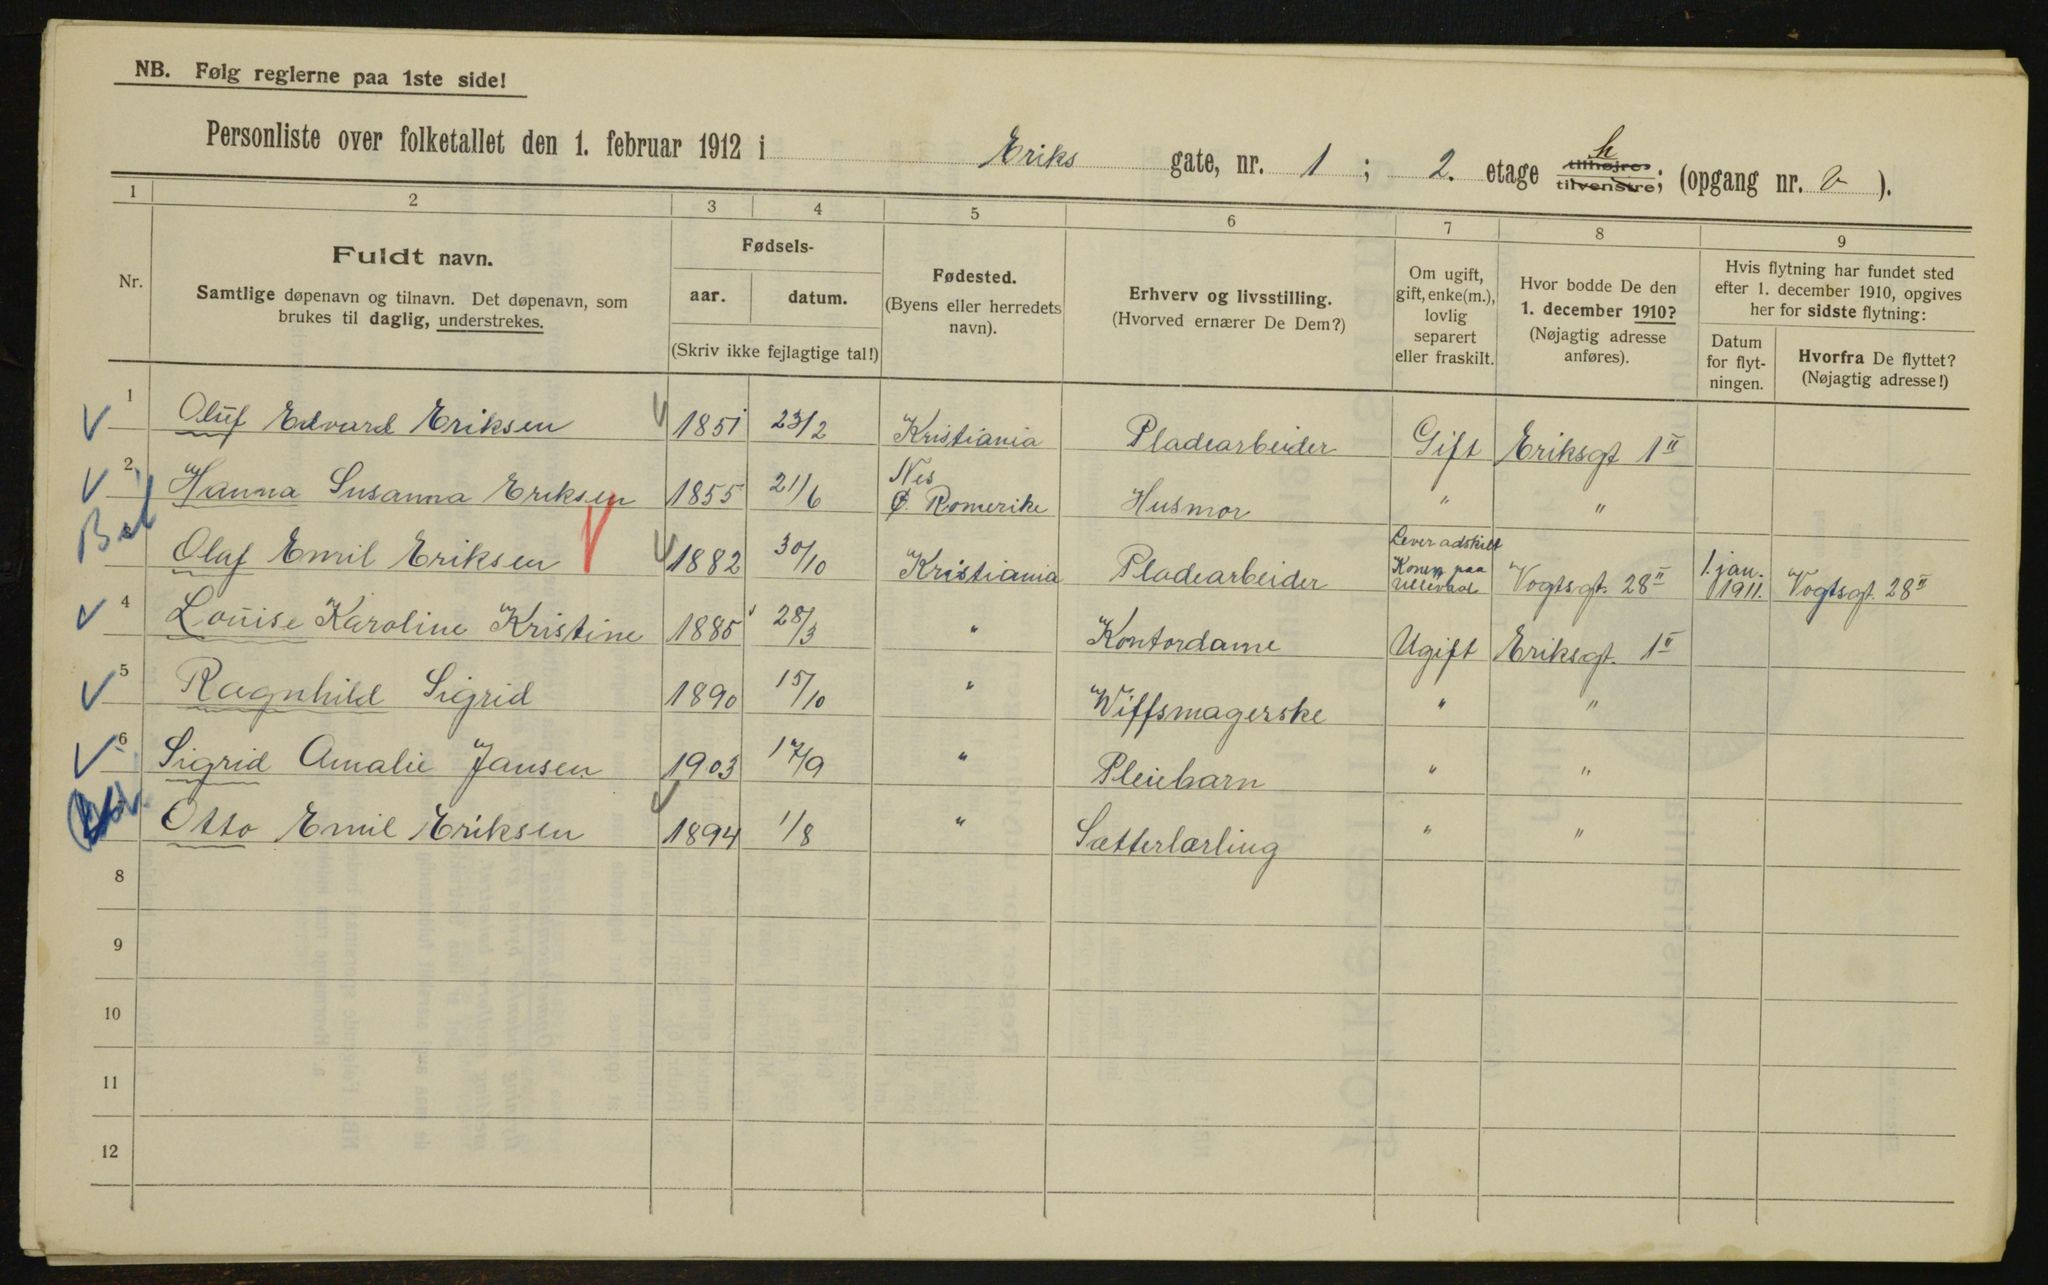 NB. Følg reglerne paa 1ste side!
Personliste over folketallet den 1. februar 1912 i Eriks gate, nr. 1 ; 2. etage tilhøjre tilvenstre; h (opgang nr. v ).
1 2 3 4 5 6 7 8 9
Nr.
Fuldt navn.
Samtlige døpenavn og tilnavn. Det døpenavn, som
brukes til daglig, understrekes.
Fødsels-
aar. datum.
(Skriv ikke fejlagtige tal!)
Fødested.
(Byens eller herredets
navn).
Erhverv og livsstilling.
(Hvorved ernærer De Dem?)
Om ugift,
gift, enke(m.),
lovlig
separert
eller fraskilt.
Hvor bodde De den
1. december 1910?
(Nøjagtig adresse
anføres).
Hvis flytning har fundet sted
efter 1. december 1910, opgives
her for sidste flytning:
Datum
for flyt-
ningen.
Hvorfra De flyttet?
(Nøjagtig adresse!)
1 Oluf Edvard Eriksen 1851 23/2 Kristiania Pladearbeider Gift Eriksgt 1 II
2 Hanna Susanna Eriksen 1855 21/6 Nes Ø. Romerike Husmor " "
Olaf Emil Eriksen 1882 30/10 Kristiania Pladearbeider Lever adskilt Konen paa Ullevaal Vogtsgt. 28 II 1. jan. 1911. Vogtsgt. 28 II
4 Louise Karoline Kristine 1885 28/3 " Kontordame Ugift Eriksgt. 1 II
5 Ragnhild Sigrid 1890 15/10 " Wiffsmagerske " "
6 Sigrid Amalie Jansen 1903 17/9 " Pleiebarn " "
Otto Emil Eriksen 1894 1/8 " Sætterlærling " "
8
9
10
11
12